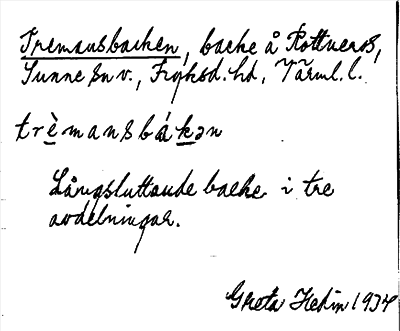 Tremansbacken, backe å Rottneros,
Sunne sn v., Fryksd. hd, Värml. l.
trèmansbákən
Långsluttande backe i tre
avdelningar.
Greta Hedin 1934